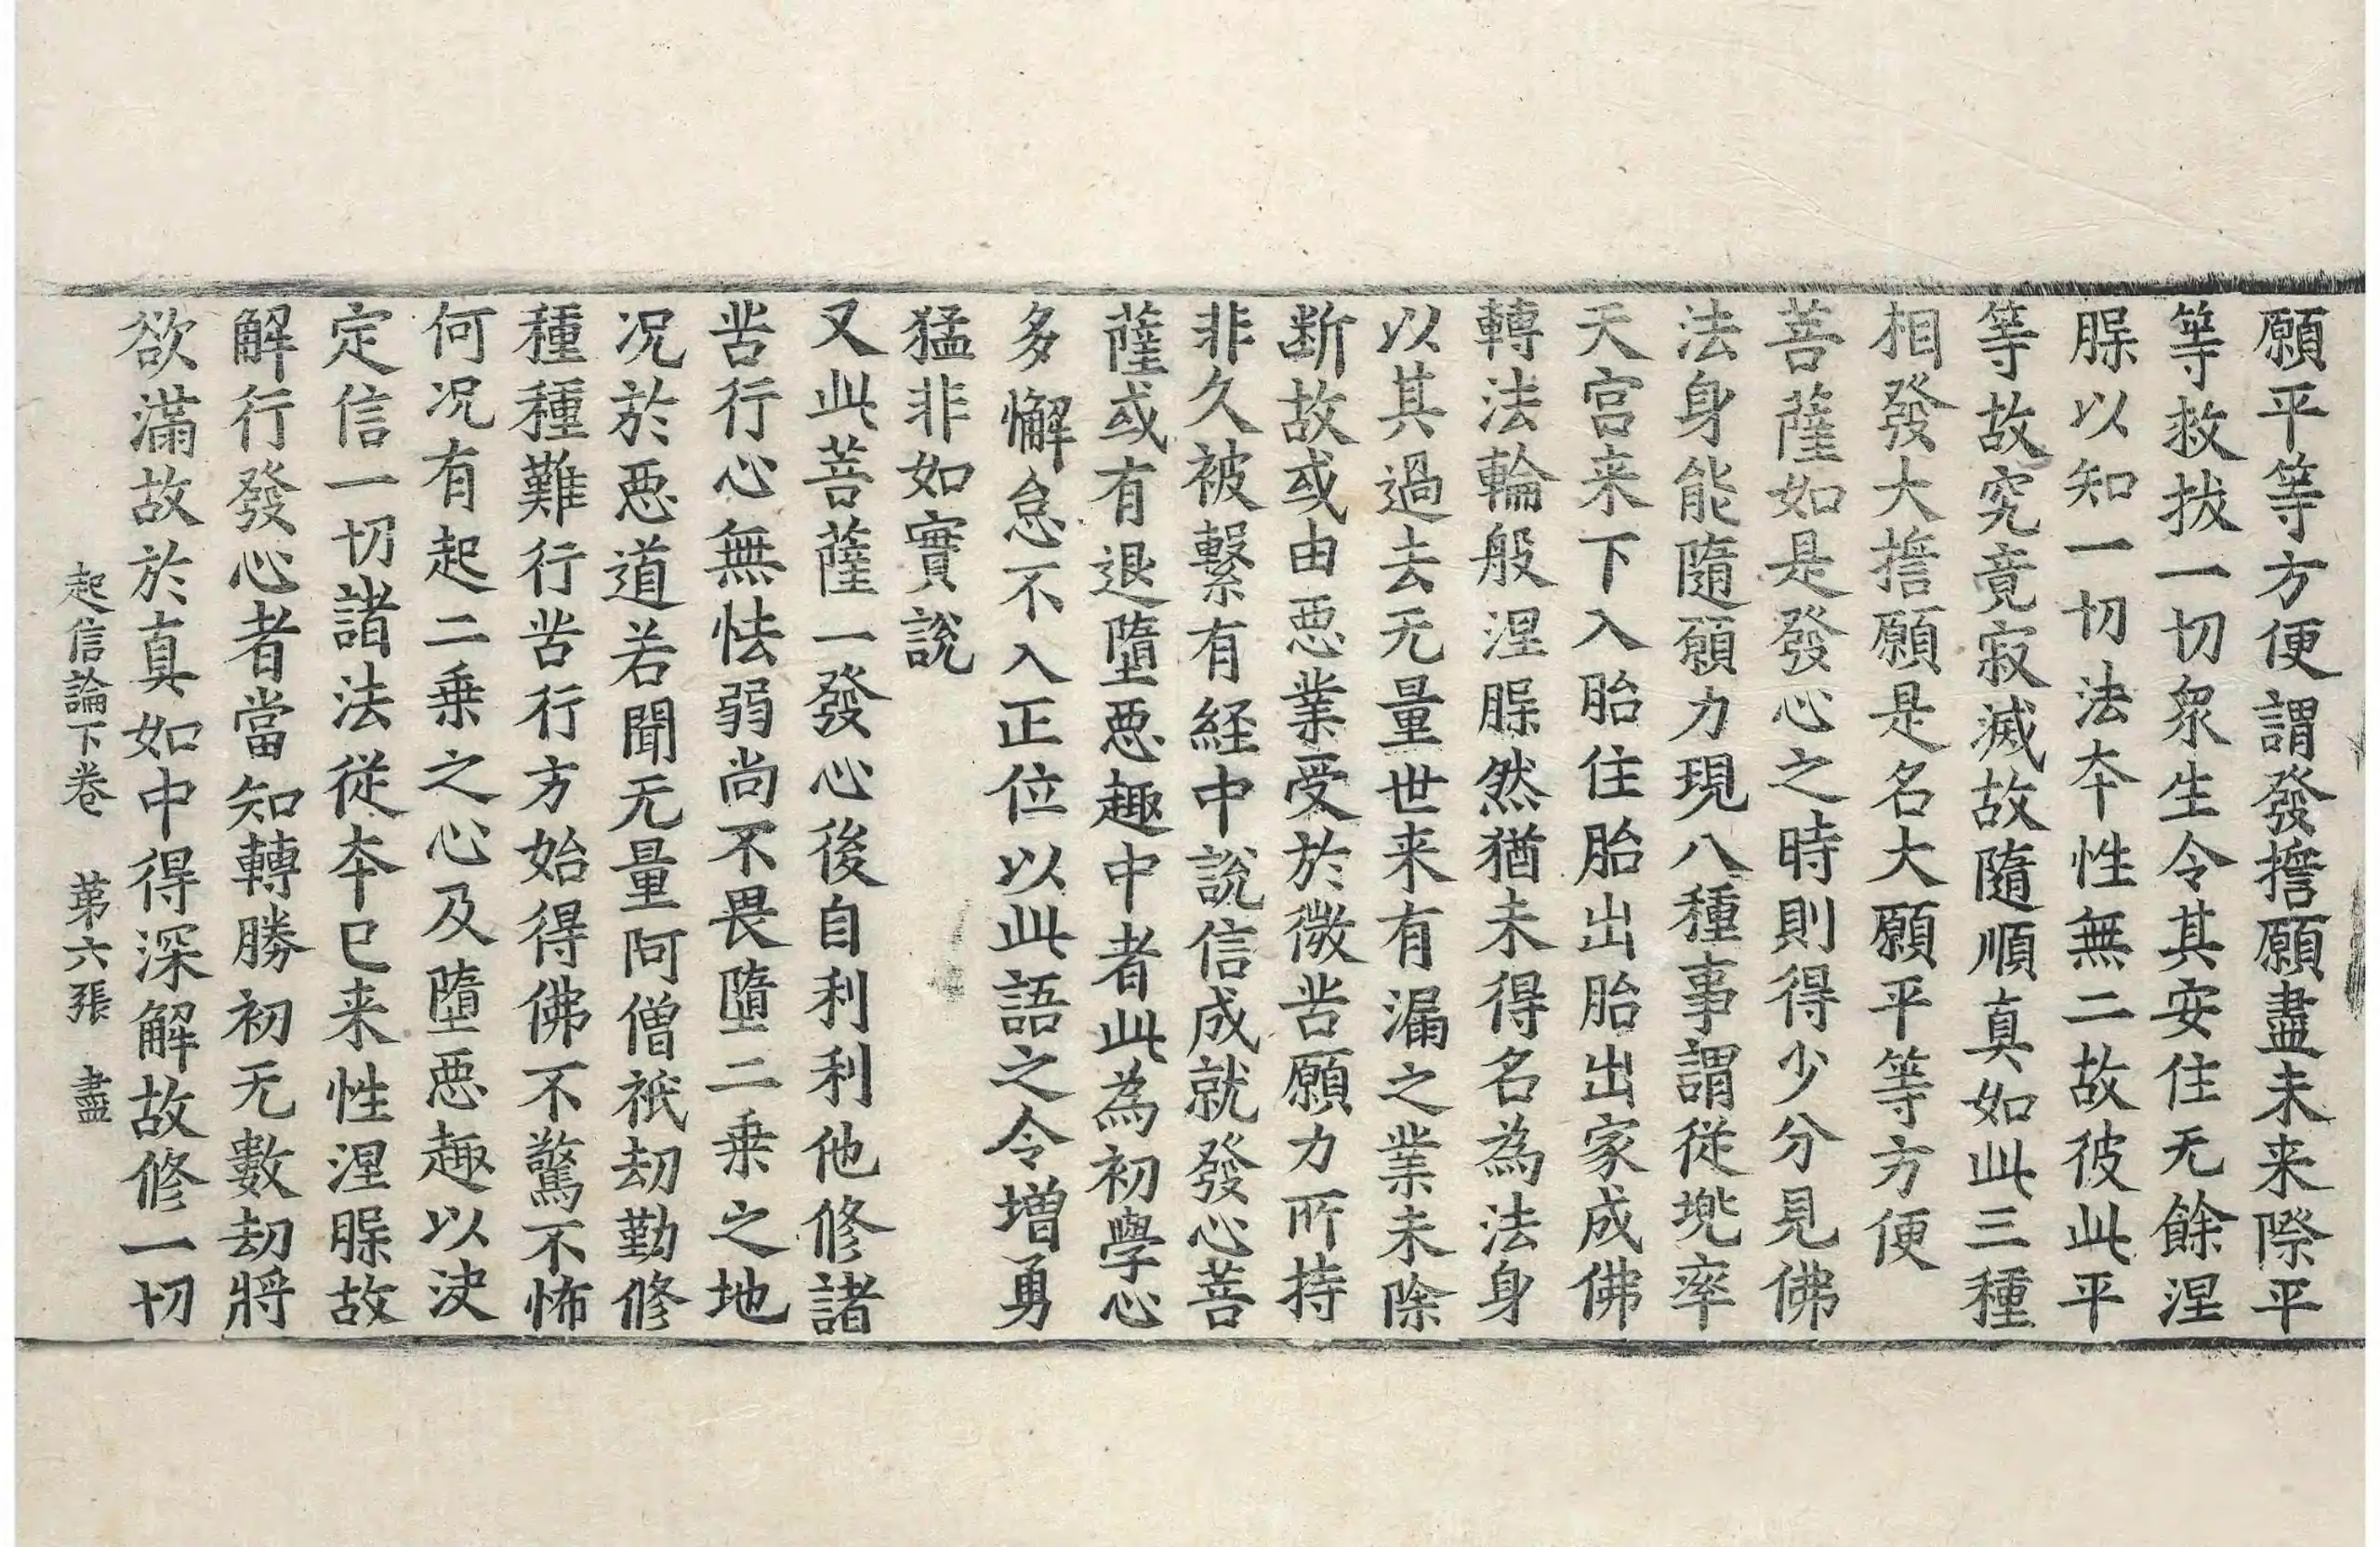 願平等方便謂發擔願盡未来際平
等救拔一切衆生令其安住无餘涅
腜以知一切法夲性無二故彼此平
等故究竟寂滅故隨順真如此三種
相發大擔願是名大願平等方便
菩薩如是發心之時則得少分見佛
法身能隨願力現八種事謂從兠率
天宫来下入胎住胎出胎出家成佛
轉法輪般涅腜然猶未得名為法身
以其過去无量世来有漏之業未除
断故或由惡業受於微苦願力所持
非久被繫有経中說信成就發心菩
薩或有退墮惡趣中者此為初學心
多懈怠不入正位以此語之令増勇
猛非如實說
又此菩薩一發心後自利利他修諸
苦行心無怯弱尚不畏墮二乗之地
况於惡道若聞无量阿僧祇劫勤修
種種難行苦行方始得佛不驚不怖
何况有起二乗之心及墮惡趣以决
定信一切諸法從夲已来性涅腜故
解行發心者當知轉勝初无數劫將
欲滿故於真如中得深解故修一切
起信論下卷 苐六張 盡